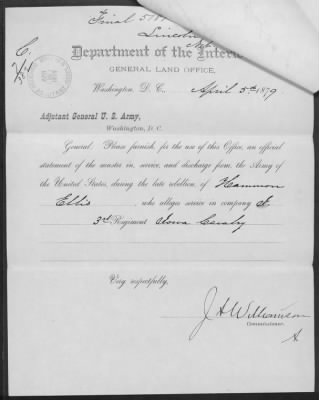 Final
Lincoln
Neb
Department of the Interior
GENERAL LAND OFFICE,
Washington, D. C., April 5th, 1879.
Adjutant General U. S. Army,
Washington, D. C.
General: Please furnish, for the use of this Office, an official
statement of the muster in, service, and discharge from, the Army of
the United States, during the late rebellion of Hammon
Ellis, who alleges service in company
3rd Regiment Iowa Cavalry
Very respectfully,
J A Williamson
Commissioner.